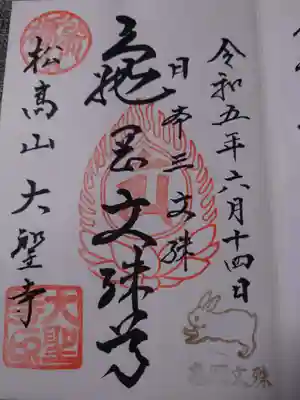 令和五年六月十四日
日本三文殊
亀岡文殊尊
松高山大聖寺